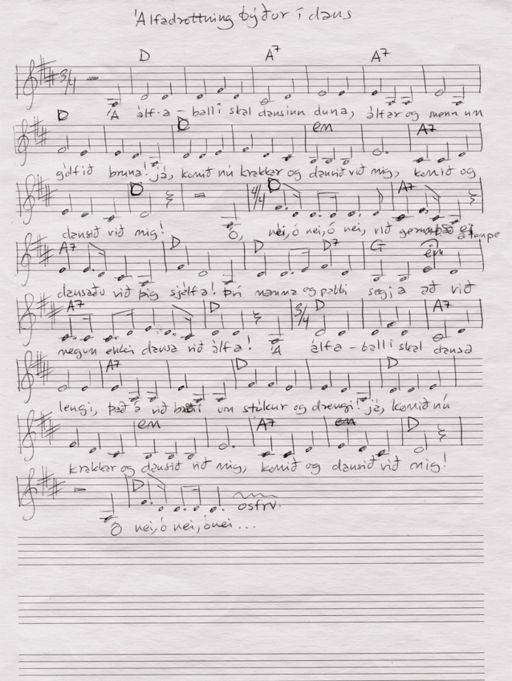 Álfadrottning býður í dans
D A7 A7
3/4
Á álf-a-balli skal dansinn duna, álfar og menn um
D D em A7
gólfið bruna! já, komið nú krakkar og dansið við mig, komið og
D 4/4 D A7
dansið við mig! Ó, nei, ó nei, ó nei, við
A7 D D D7 G em
dansaðu við þig sjálfa! Því mamma og pabbi segja að við
A7 D 3/4 D A7
megum ekki dansa við álfa! Á álfa-balli skal dansa
A7 D D
lengi, það á við um stúlkur og drengi! já, komið nú
em A7 em D
krakkar og dansið við mig, komið og dansið við mig!
D osfrv.
Ó nei, ó nei, ó nei...